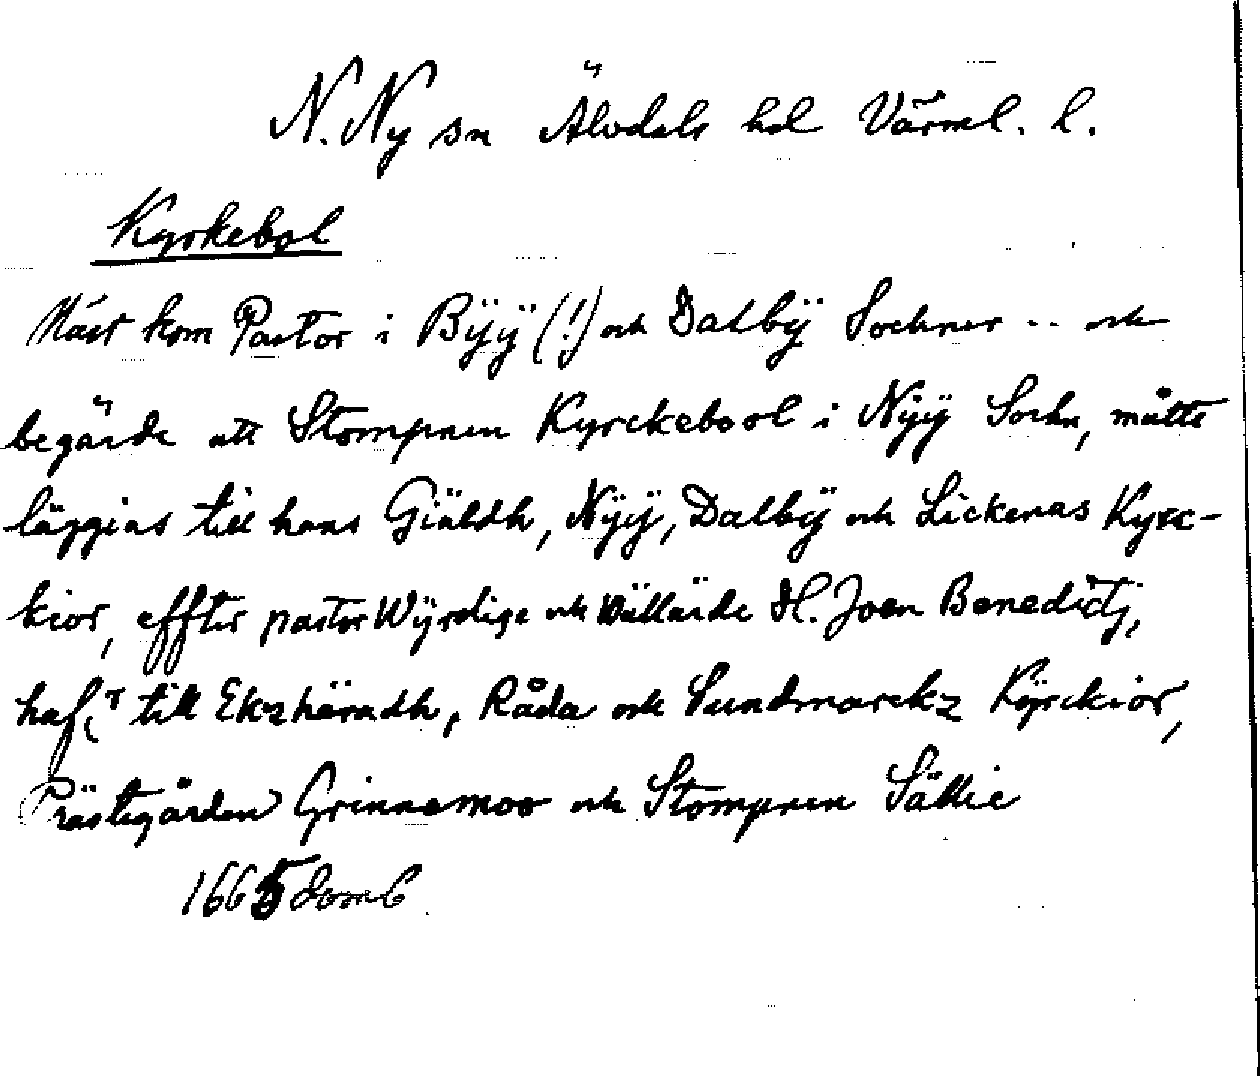 N. Ny sn Älvdals hd Värml. l.
Kyrkebol
Näst kom Pastor i Bÿÿ (!) och Dalbÿ Sochner -- och
begärde att Stompnen Kyrckebool i Nÿÿ Sochn, måtte
läggias till hans Giäldh, Nÿÿ, Dalbÿ och Lickenas Kyrc-
kior, effter pastor Wÿrdige och Wällärde H. Joen Benedictj,
till Ekzhäradh, Råda och Sundmarckz Kÿrckior,
Prästegården Grinnemoo och Stompnen Sällie
1665 domb